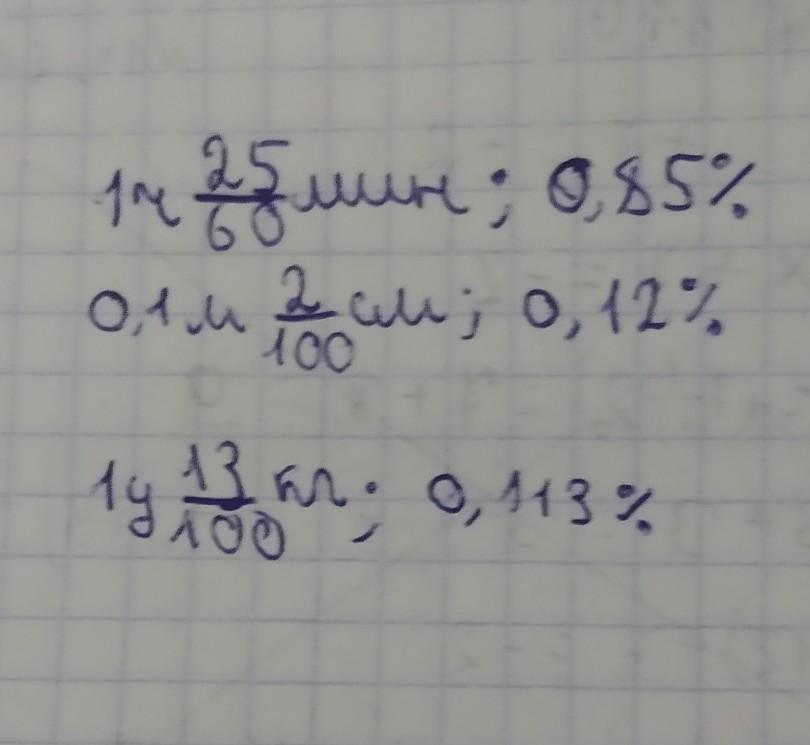 1ч 25/60 мин; 0,85%
0,1м 2/100 см; 0,12%
1ц 13/100 кг; 0,113%